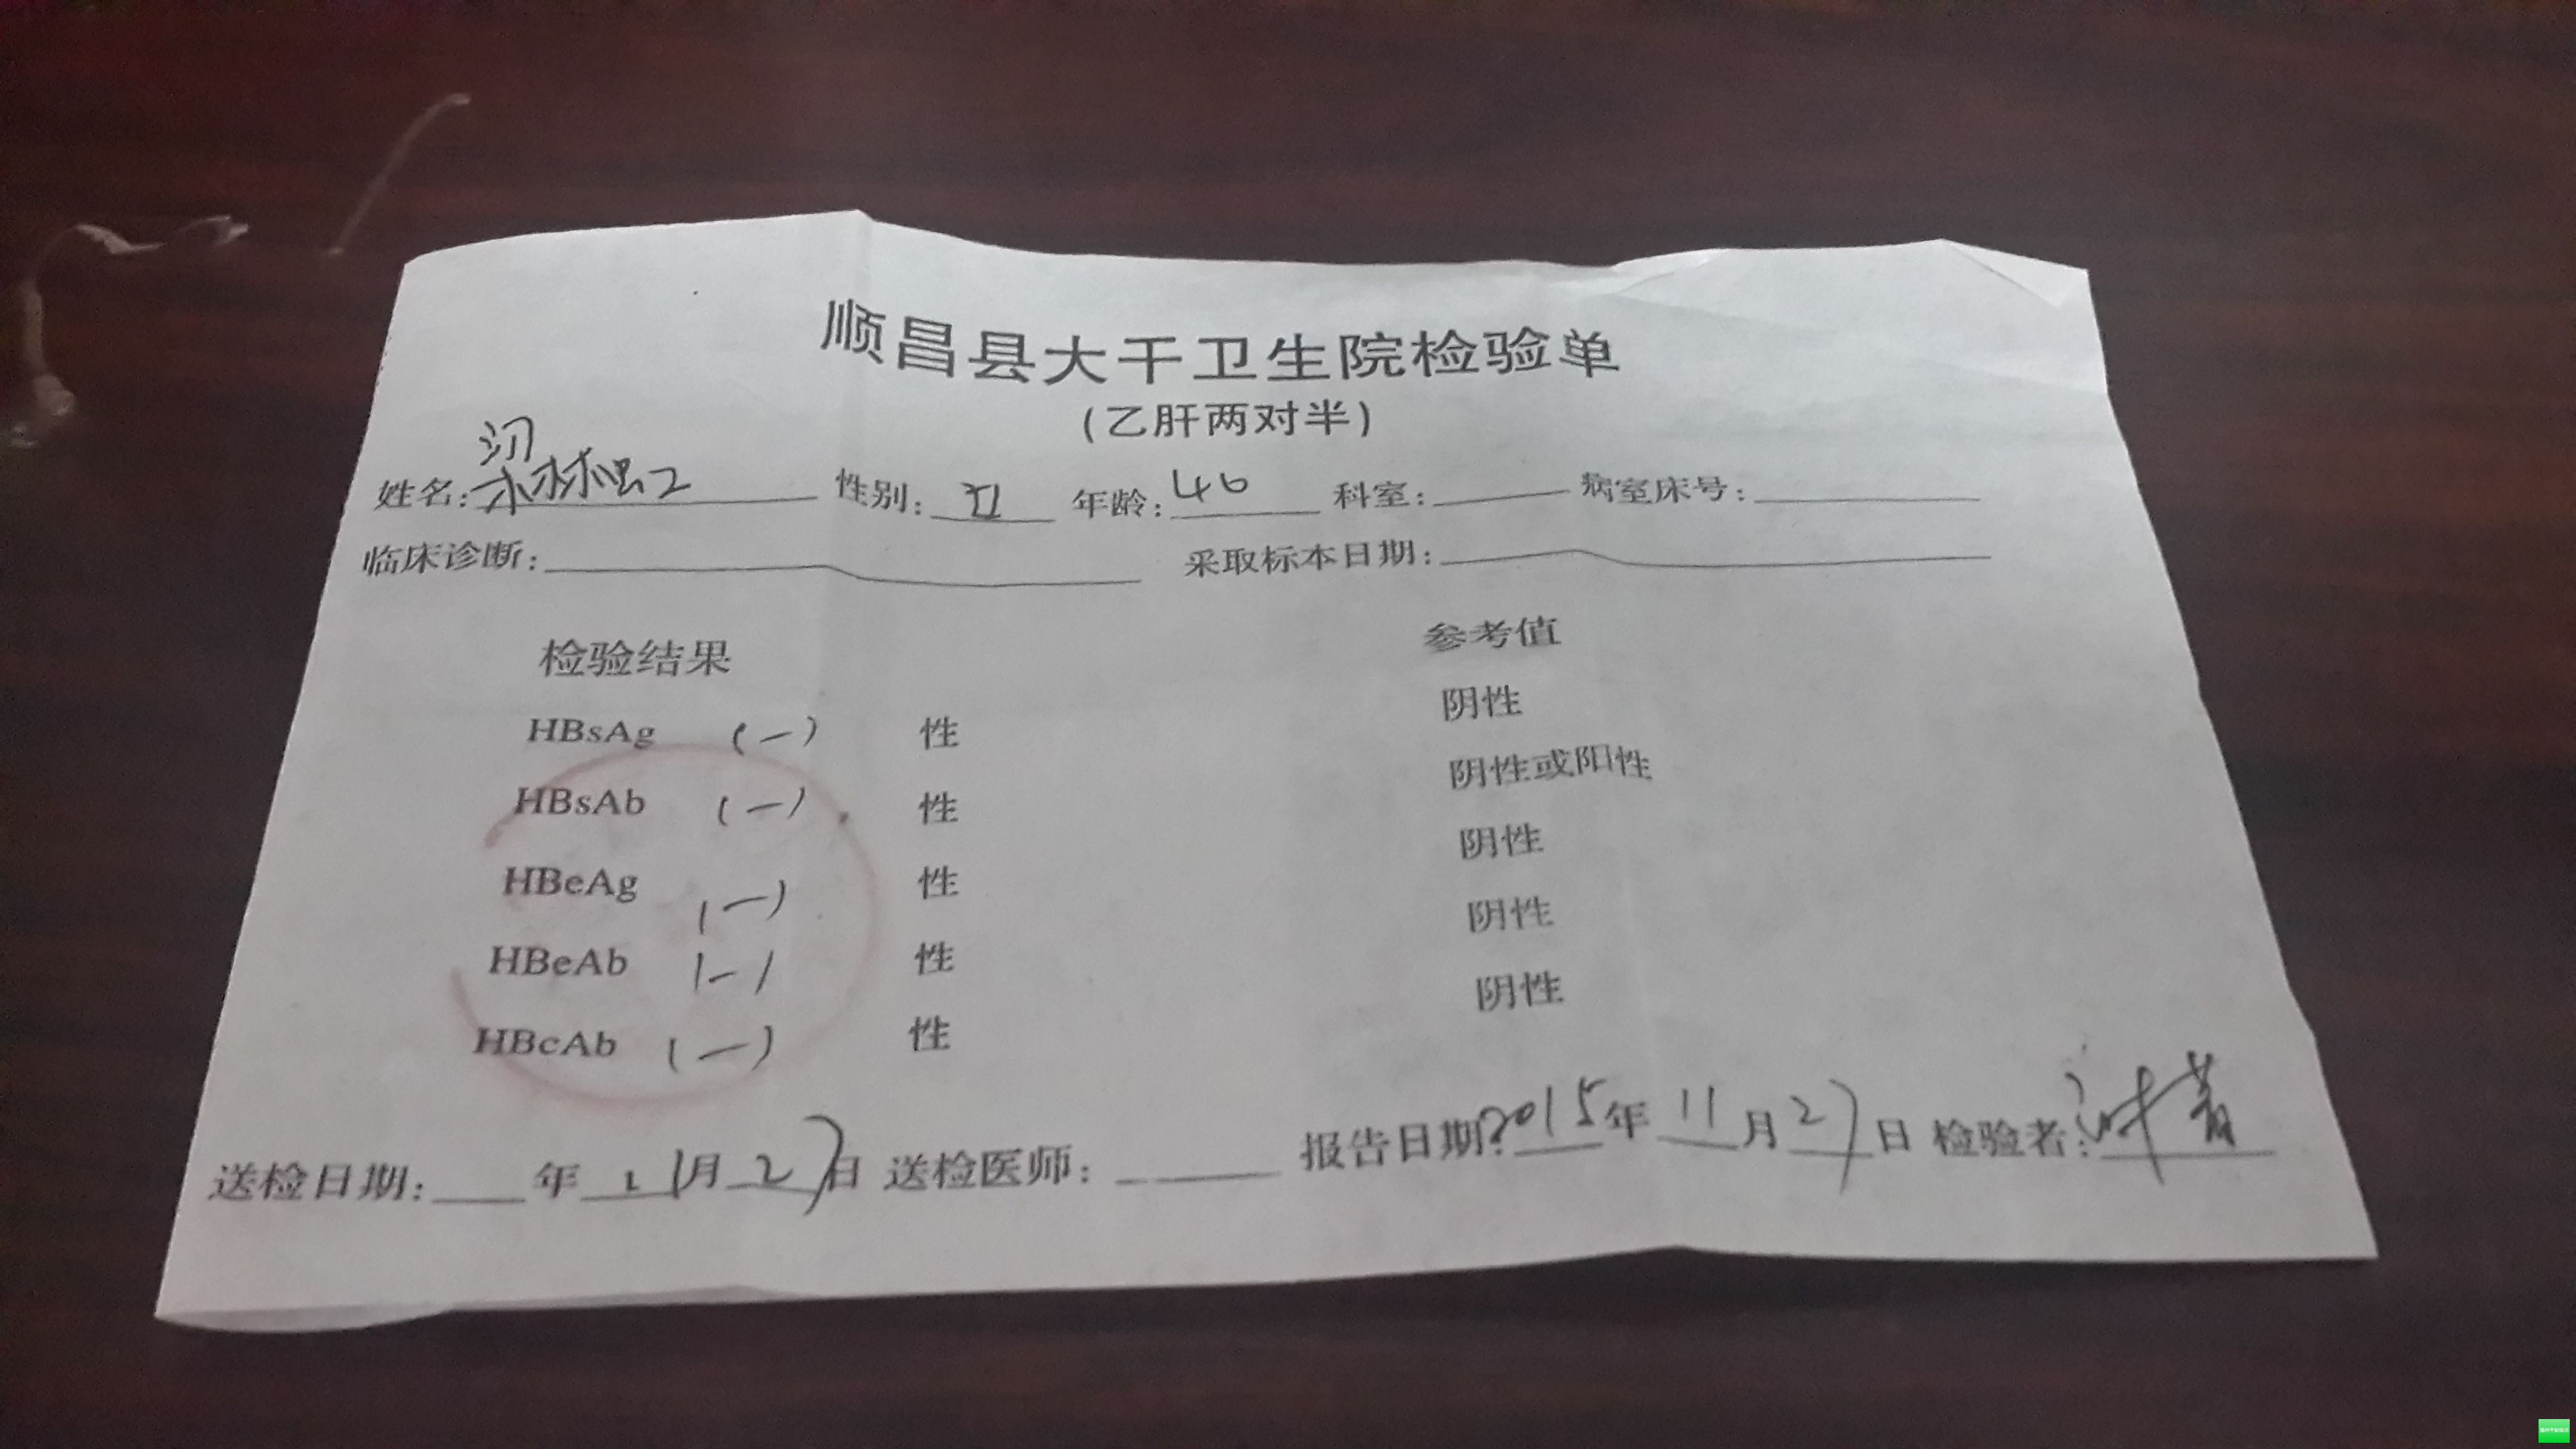 顺昌县大干卫生院检验单
(乙肝两对半)
姓名:梁林 性别: 年龄:46 科室: 病室床号:
临床诊断: 采取标本日期:
检验结果 参考值
HBsAg (一) 性 阴性
HBsAb (一) 性 阴性或阳性
HBeAg (一) 性 阴性
HBeAb (一) 性 阴性
HBcAb (一) 性 阴性
送检日期: 年11月27日 送检医师: 报告日期:2015年11月27日 检验者: